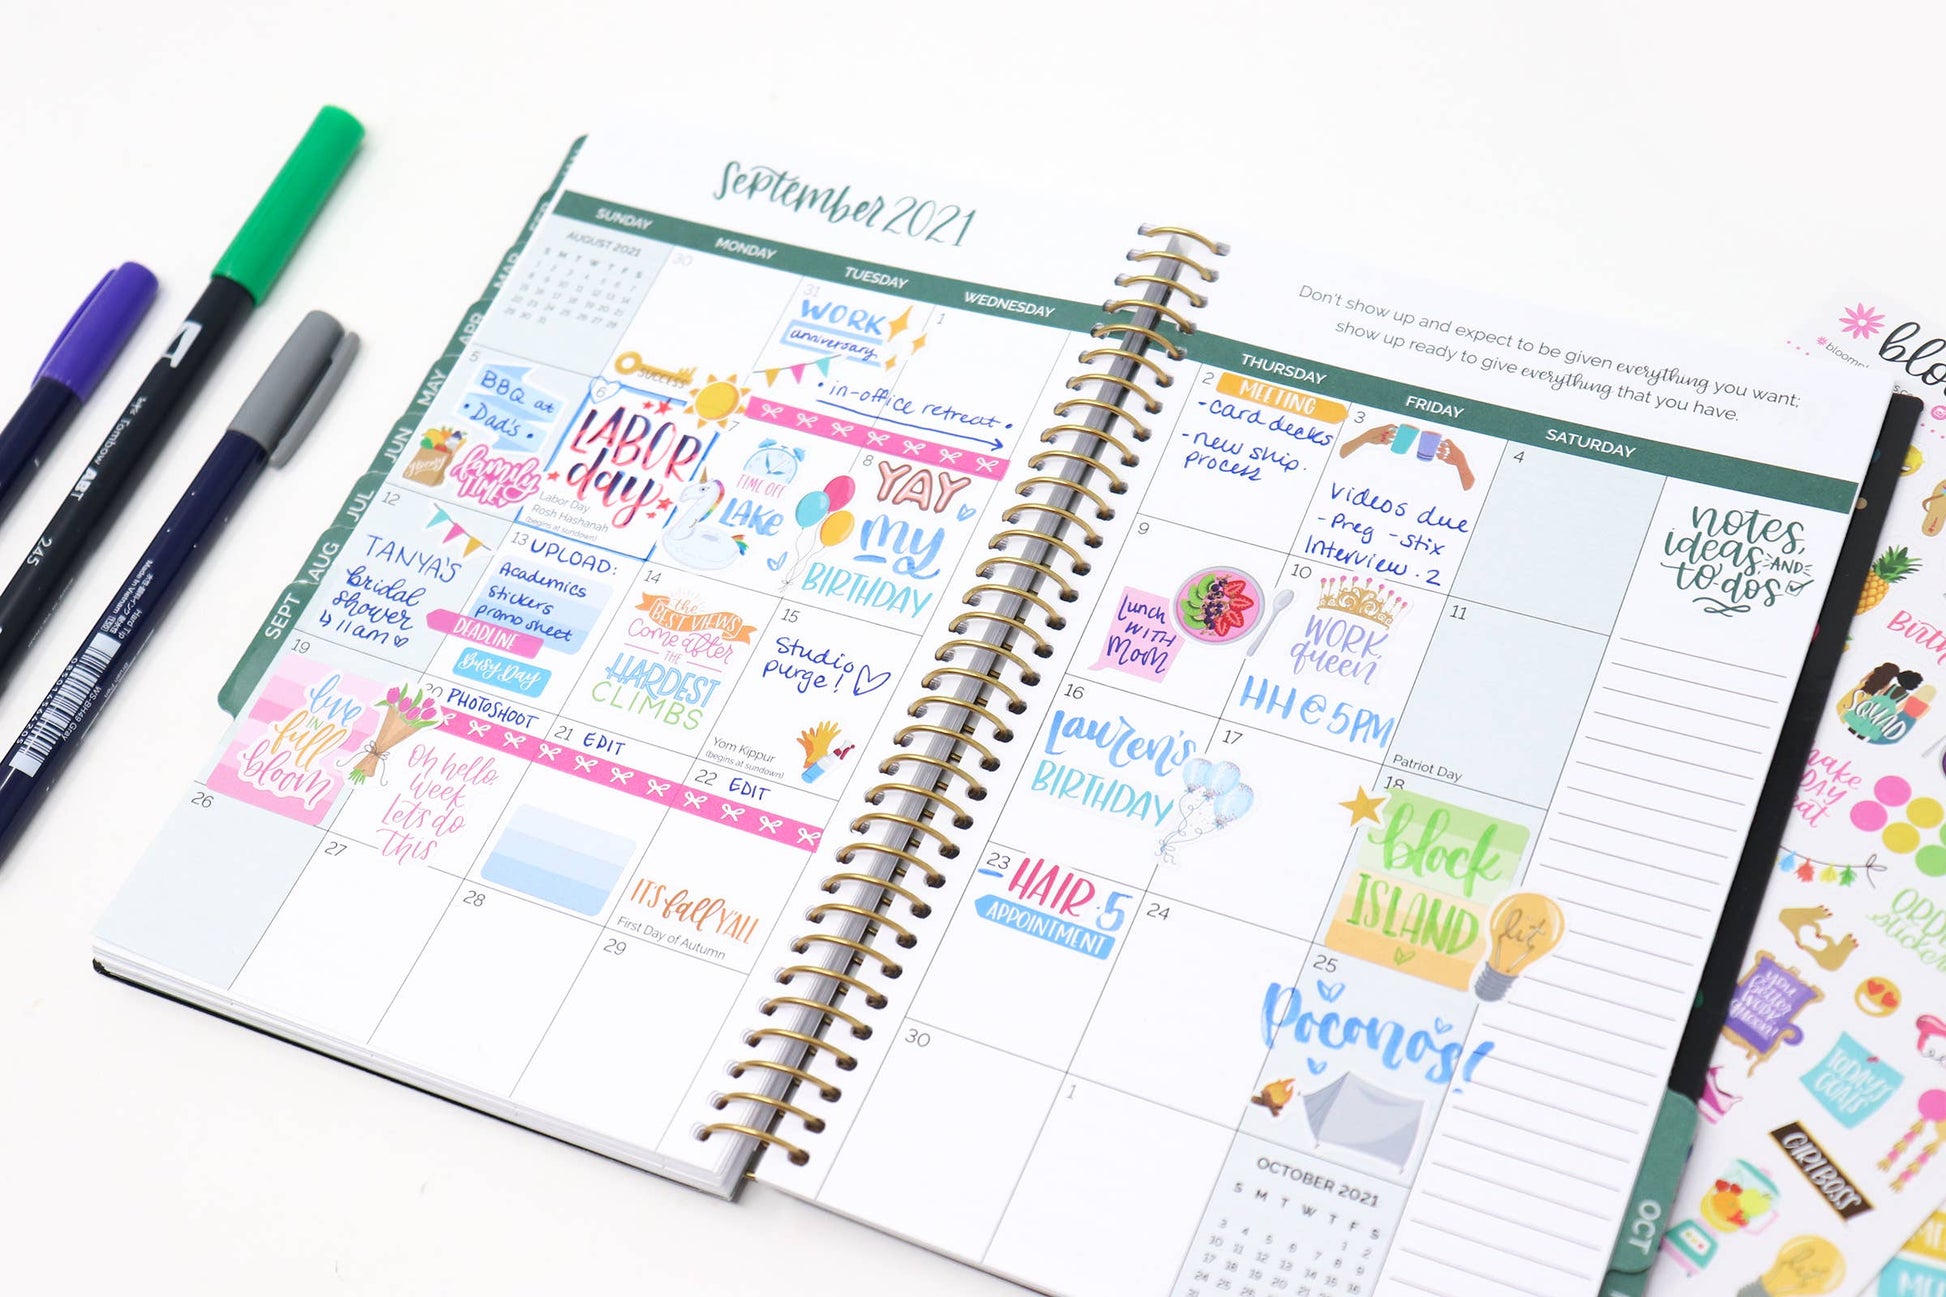 September 2021
Don't show up and expect to be given everything you want;
show up ready to give everything that you have.
SUNDAY
MONDAY
TUESDAY
WEDNESDAY
THURSDAY
FRIDAY
SATURDAY
AUGUST 2021
S M T W T F S
30
31
WORK
anniversary
1
• in-office retreat •
2
MEETING
- card decks
- new ship.
process
3
videos due
- Preg - stix
Interview · 2
4
notes,
ideas, AND
to-dos
5
BBQ at
• Dad's •
groceries
family
TIME
SUCCESS
6
LABOR
day
Labor Day
Rosh Hashanah
(begins at sundown)
7
TIME OFF
LAKE
8
YAY
my
BIRTHDAY
9
lunch
WITH
Mom
10
WORK
queen
HH @ 5PM
11
Patriot Day
12
TANYA'S
bridal
shower
↳ 11am ♡
13
UPLOAD:
Academics
Stickers
promo sheet
DEADLINE
Busy Day
14
the
BEST VIEWS
Come after
THE
HARDEST
CLIMBS
15
Studio
purge! ♡
Yom Kippur
(begins at sundown)
16
Lauren's
BIRTHDAY
17
18
block
ISLAND
lit
19
live
IN
full
bloom
20
PHOTOSHOOT
Oh hello,
week
Let's do
this
21
EDIT
22
EDIT
IT'S fall Y'ALL
First Day of Autumn
23
HAIR · 5
APPOINTMENT
24
25
Poconos!
26
27
28
29
30
1
OCTOBER 2021
S M T W T F S
1 2
3 4 5 6 7 8 9
10 11 12 13 14 15 16
MAR
APR
MAY
JUN
JUL
AUG
SEPT
OCT
Tombow ART
245
Hard Tip
Made in Vietnam
WS-BH49 Gray
SQUAD
YOU
better
WORK
Queen!
TODAY'S
GOALS
GIRL BOSS
lit